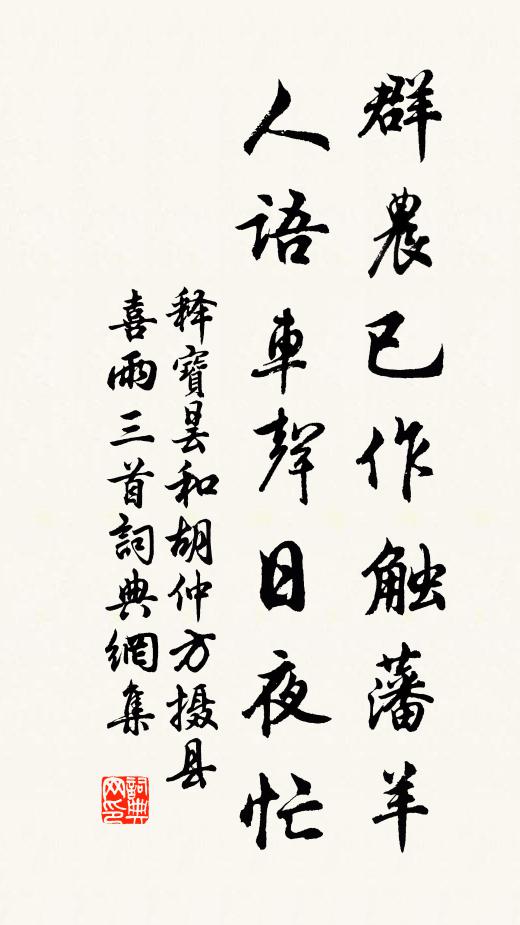 群農已作触藩羊
人語車聲日夜忙
释寶曇和胡仲方摄县
喜雨三首詞典網集
詞典
网印